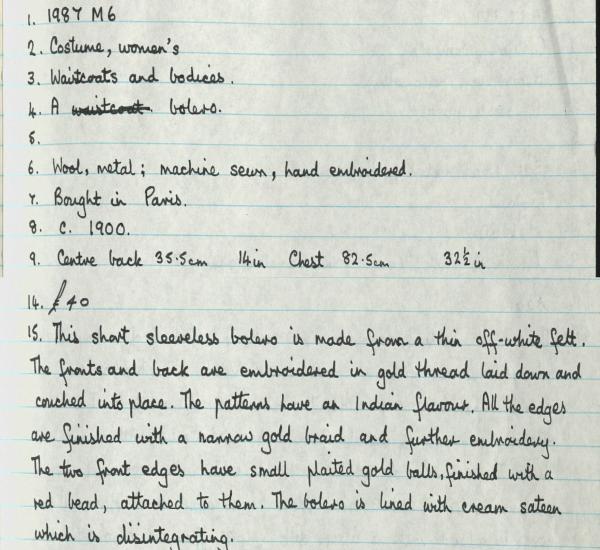 1. 1987 M6
2. Costume, women's
3. Waistcoats and bodices.
4. A waistcoat. bolero.
5.
6. Wool, metal; machine sewn, hand embroidered.
7. Bought in Paris.
8. c. 1900.
9. Centre back 35.5cm 14in Chest 82.5cm 32½in
14. £40
15. This short sleeveless bolero is made from a thin off-white felt.
The fronts and back are embroidered in gold thread laid down and
couched into place. The patterns have an Indian flavour. All the edges
are finished with a narrow gold braid and further embroidery.
The two front edges have small plaited gold balls, finished with a
red bead, attached to them. The bolero is lined with cream sateen
which is disintegrating.